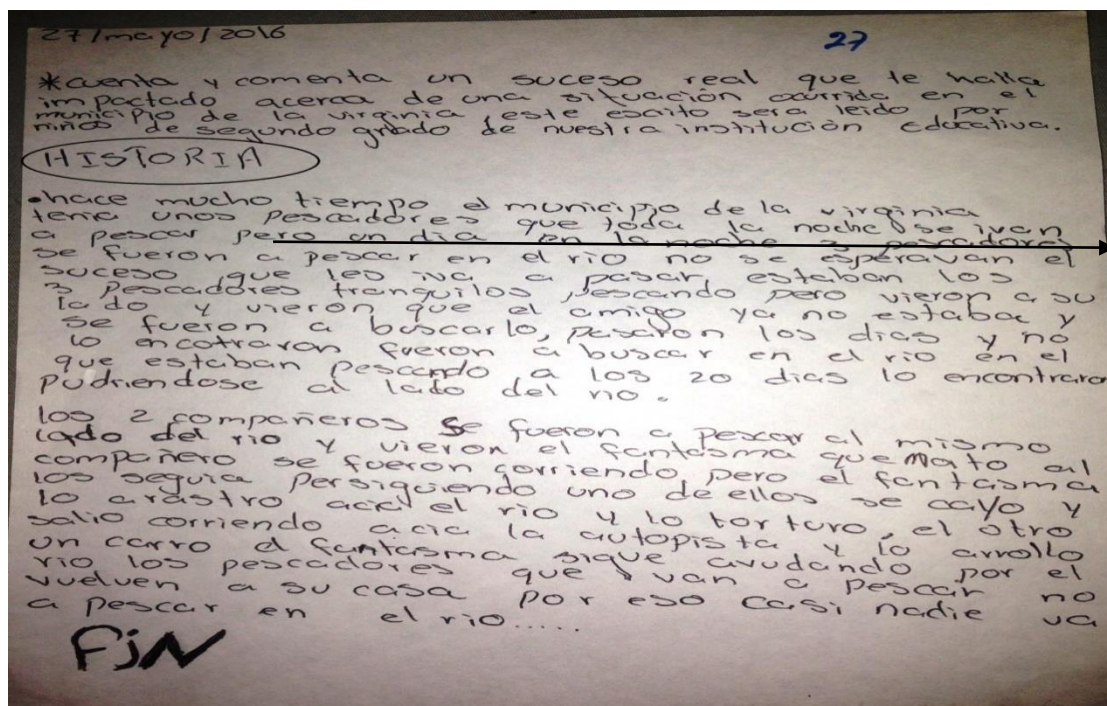 27/mayo/2016
27
*cuenta y comenta un suceso real que te halla
impactado acerca de una situación ocurrida en el
municipio de la virginia, este escrito sera leido por
niños de segundo grado de nuestra institución educativa.
HISTORIA
•hace mucho tiempo el municipio de la virginia
tenia unos pescadores que toda la noche se ivan
a pescar pero un dia en la noche 3 pescadores
se fueron a pescar en el rio no se esperavan el
suceso que les iva a pasar estaban los
3 pescadores tranquilos pescando pero vieron a su
lado y vieron que el amigo ya no estaba y
se fueron a buscarlo, pasaron los dias y no
lo encotraron fueron a buscar en el rio en el
que estaban pescando a los 20 dias lo encontraro
pudriendose al lado del rio.
los 2 compañeros se fueron a pescar al mismo
lado del rio y vieron el fantasma que mato al
compañero se fueron corriendo pero el fantasma
los seguia persiguiendo uno de ellos se cayo y
lo arastro acia el rio y lo torturo, el otro
salio corriendo acia la autopista y lo arrollo
un carro el fantasma sigue avudando por el
rio los pescadores que van a pescar no
vuelven a su casa por eso casi nadie va
a pescar en el rio.....
FiN